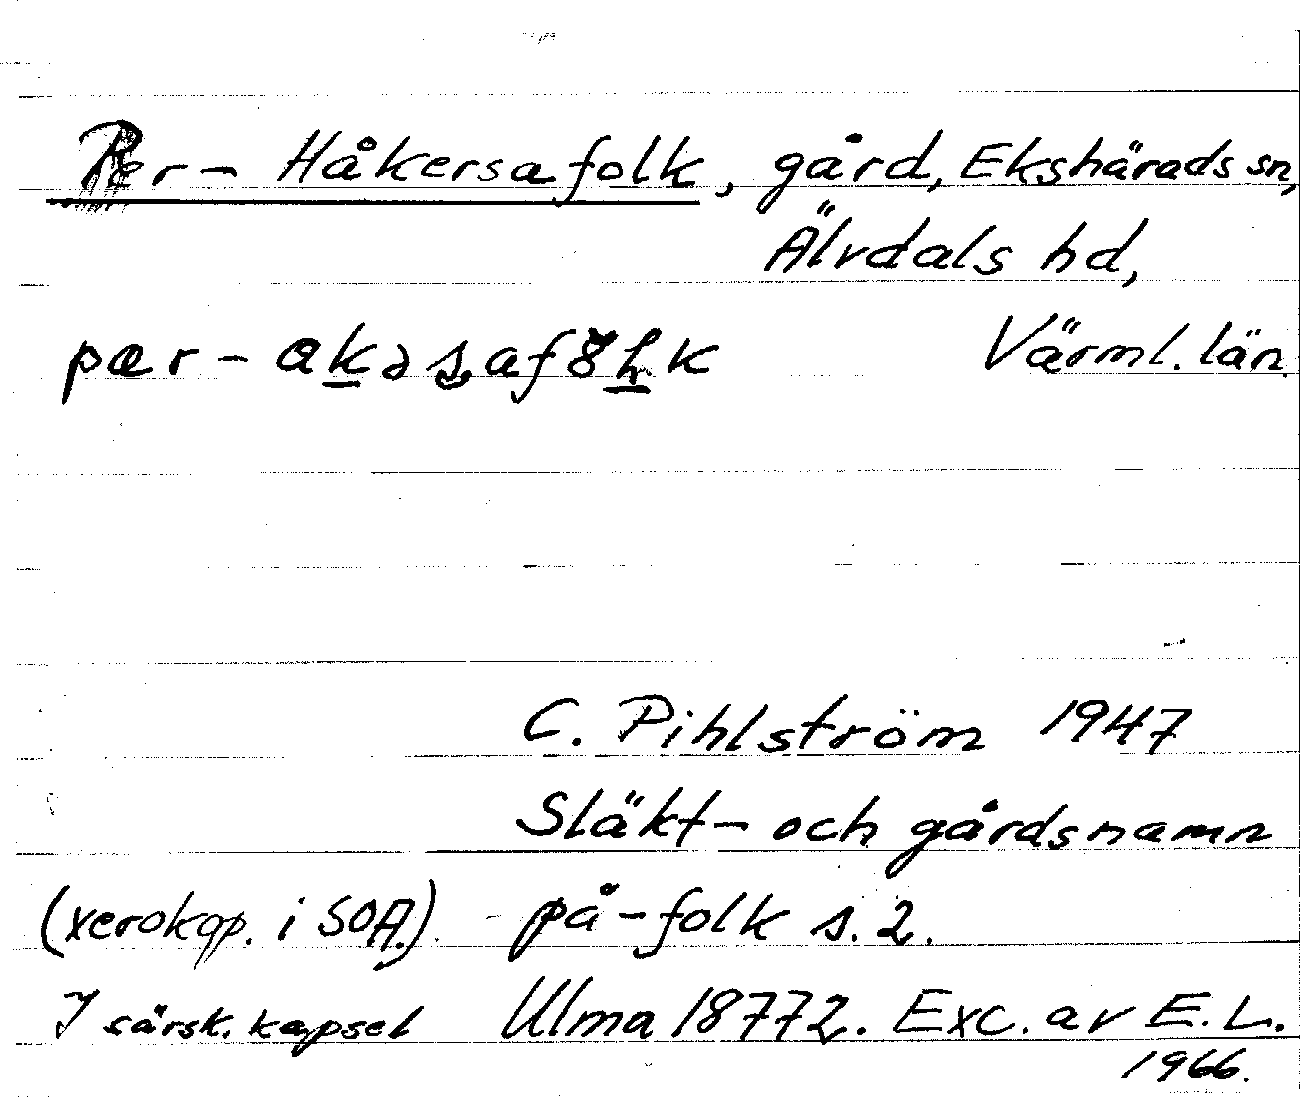 Per-Håkersafolk, gård, Ekshärads sn,
Älvdals hd,
Värml. län
C. Pihlström 1947
Släkt- och gårdsnamn
(xerokop. i SOA.) på -folk s. 2.
I särsk. kapsel Ulma 18772. Exc. av E. L.
1966.